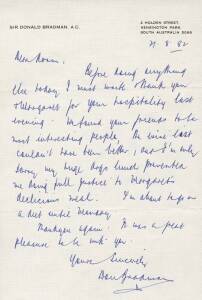 SIR DONALD BRADMAN, A.C.
2 HOLDEN STREET,
KENSINGTON PARK,
SOUTH AUSTRALIA 5068
21 8 82
Before doing anything
else today I must thank you
& Margaret for your hospitality last
evening. We found your friends to be
most interesting people, the wine last
couldn't have been better, and I'm only
sorry my huge lunch prevented
me doing full justice to Margaret's
delicious meal. I'm about to go on
a diet until Monday
again. It was a great
pleasure to be with you.
Yours Sincerely,
Don Bradman